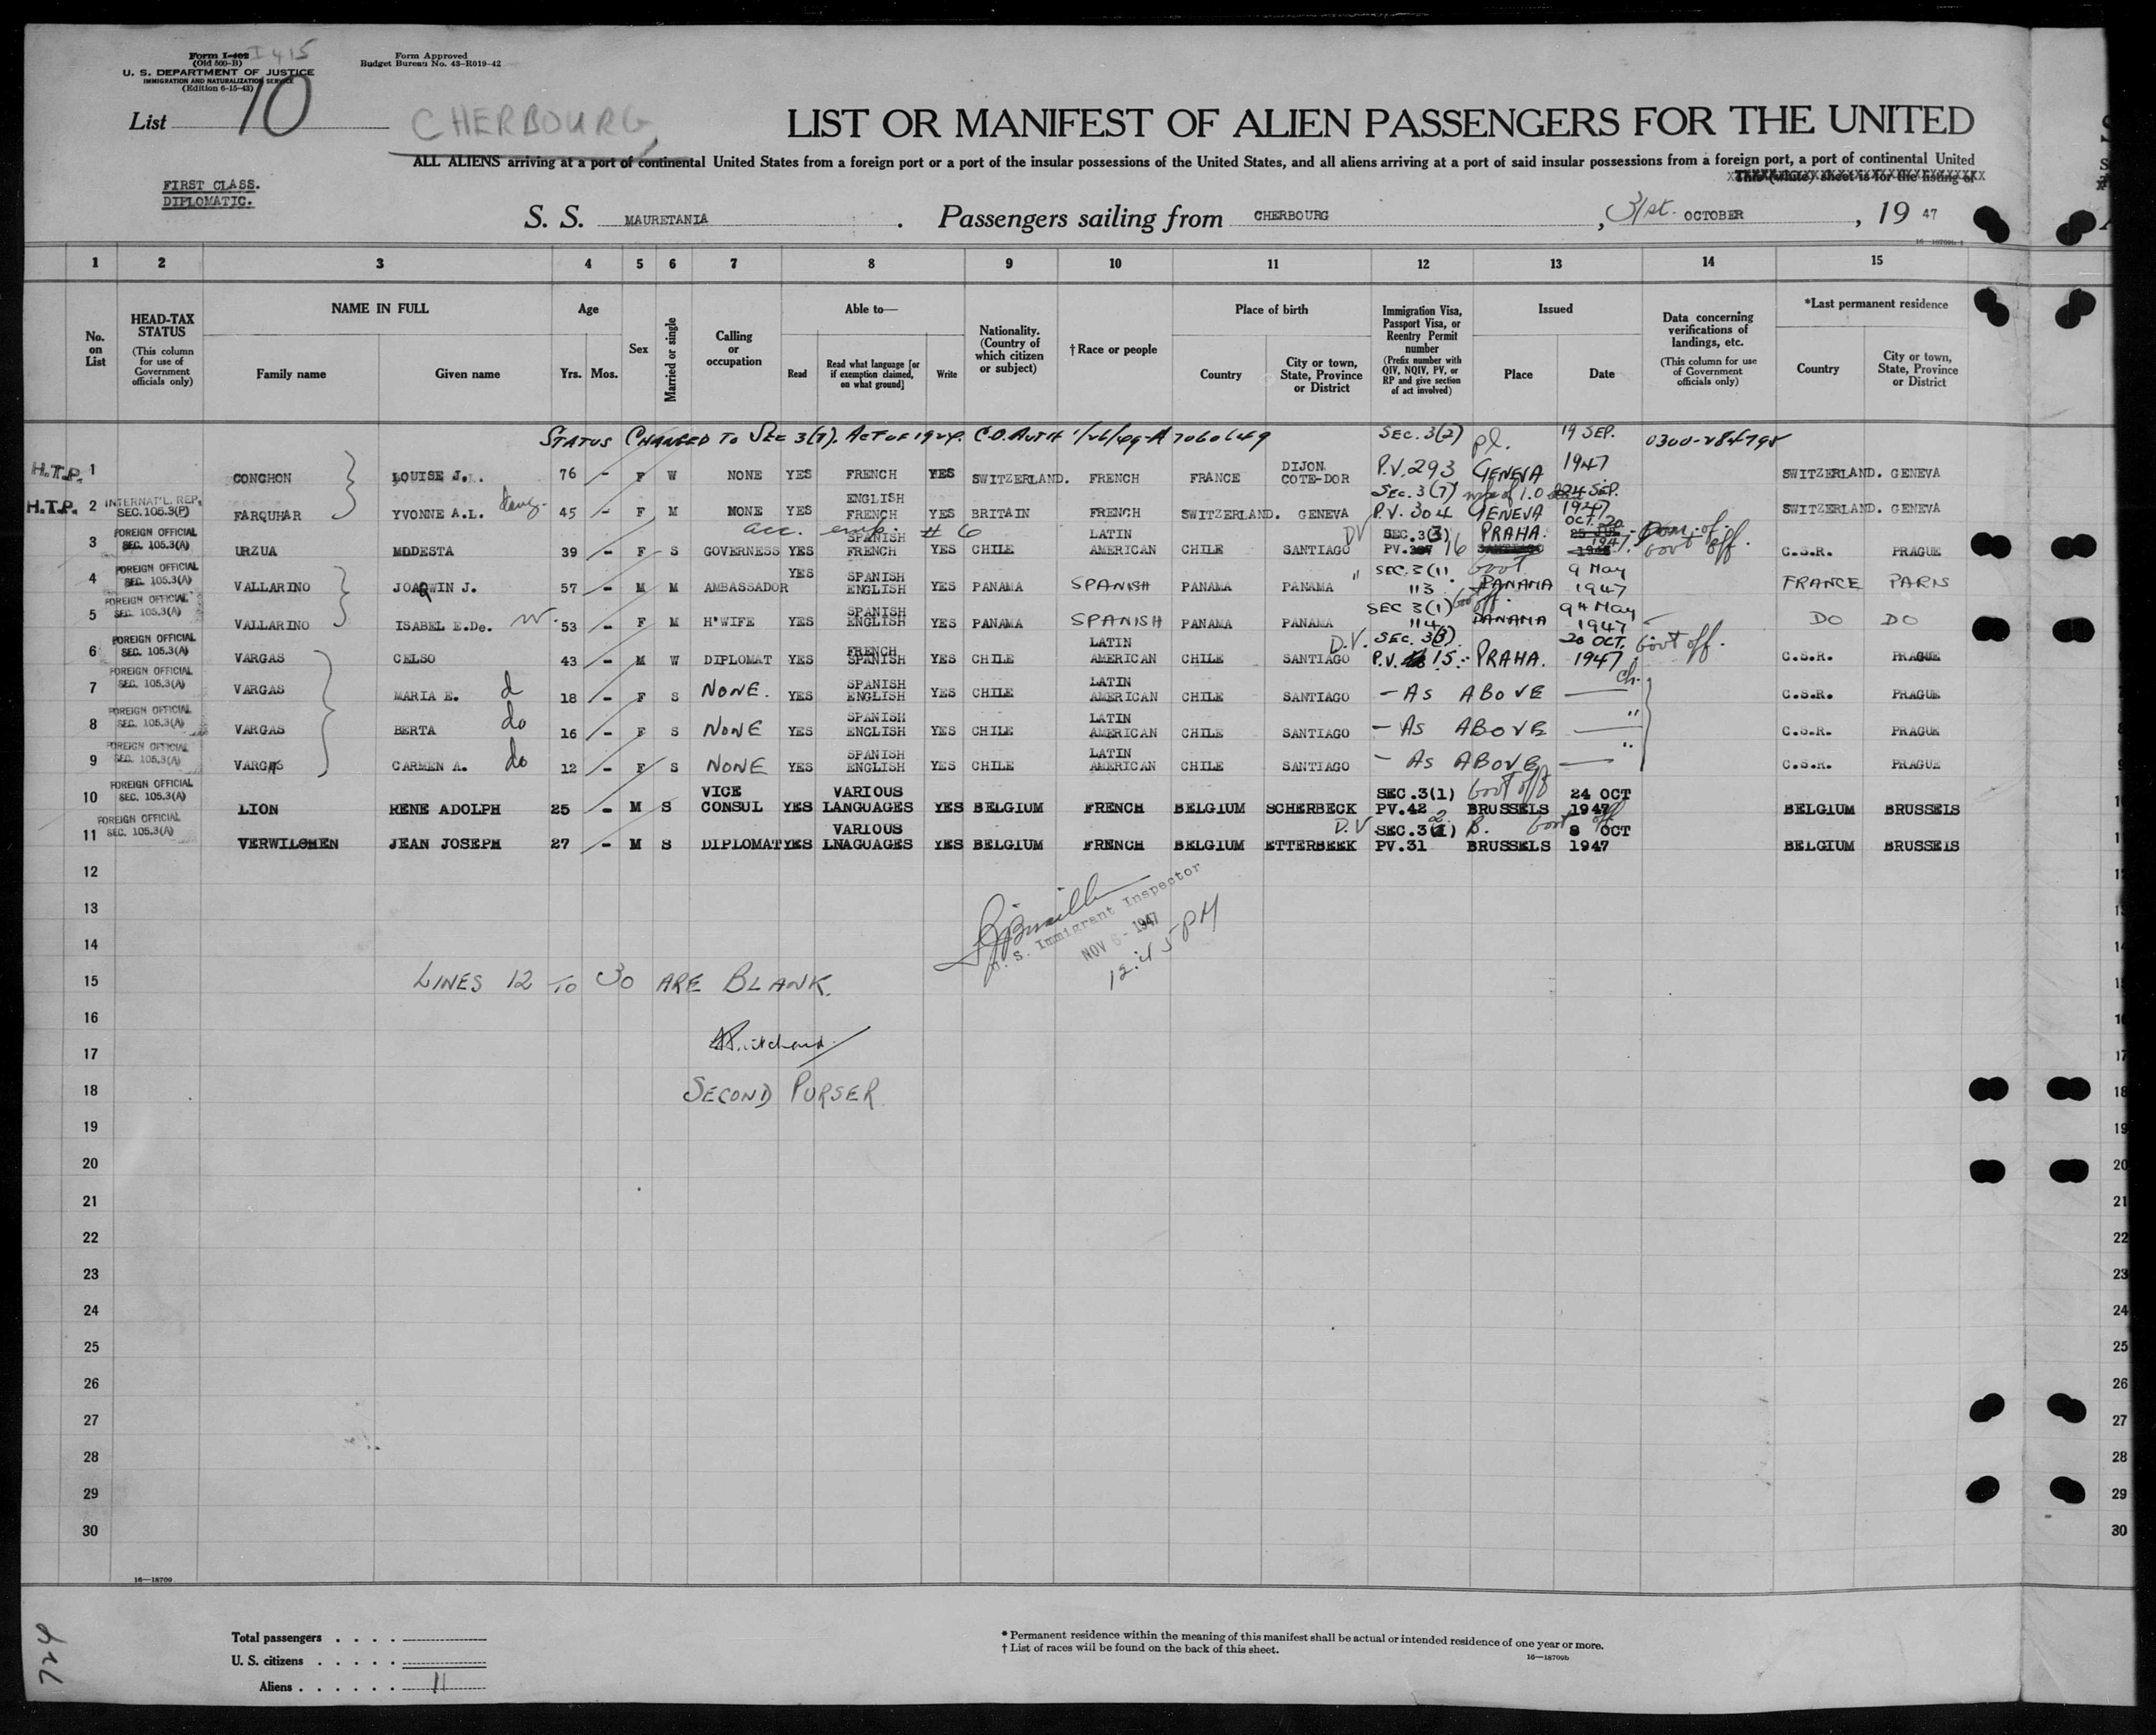 Form I-402 I 415
(Old 500-B)
U. S. DEPARTMENT OF JUSTICE
IMMIGRATION AND NATURALIZATION SERVICE
(Edition 6-15-43)
Form Approved
Budget Bureau No. 43-R019-42
List 10
CHERBOURG
LIST OR MANIFEST OF ALIEN PASSENGERS FOR THE UNITED
ALL ALIENS arriving at a port of continental United States from a foreign port or a port of the insular possessions of the United States, and all aliens arriving at a port of said insular possessions from a foreign port, a port of continental United
This (white) sheet is for the listing of
FIRST CLASS.
DIPLOMATIC.
S. S. MAURETANIA. Passengers sailing from CHERBOURG, 31st. OCTOBER, 19 47
16—18709b-1
1 2 3 4 5 6 7 8 9 10 11 12 13 14 15
No. on List
HEAD-TAX STATUS
(This column for use of Government officials only)
NAME IN FULL
Family name
Given name
Age
Yrs. Mos.
Sex
Married or single
Calling or occupation
Able to—
Read
Read what language [or if exemption claimed, on what ground]
Write
Nationality. (Country of which citizen or subject)
†Race or people
Place of birth
Country
City or town, State, Province or District
Immigration Visa, Passport Visa, or Reentry Permit number
(Prefix number with QIV, NQIV, PV, or RP and give section of act involved)
Issued
Place
Date
Data concerning verifications of landings, etc.
(This column for use of Government officials only)
*Last permanent residence
Country
City or town, State, Province or District
STATUS CHANGED TO SEC 3(7). ACT OF 1924. C.O. AUTH 1/26/49-A 7060649 SEC. 3(2) pl. 19 SEP. 0300-284795
H.T.P. 1 CONCHON LOUISE J.. 76 - F W NONE YES FRENCH YES SWITZERLAND. FRENCH FRANCE DIJON COTE-DOR P.V. 293 GENEVA 1947 SWITZERLAND. GENEVA
H.T.P. 2 INTERNAT'L. REP. SEC.105.3(F) FARQUHAR YVONNE A.L. daug. 45 - F M NONE YES ENGLISH FRENCH YES BRITAIN FRENCH SWITZERLAND. GENEVA SEC. 3(7) wife of I.O P.V. 304 GENEVA SEP. 1947 SWITZERLAND. GENEVA
acc. emp. # 6
3 FOREIGN OFFICIAL SEC. 105.3(A) URZUA MODESTA 39 - F S GOVERNESS YES SPANISH FRENCH YES CHILE LATIN AMERICAN CHILE SANTIAGO DV SEC. 3(3) PV. 16 PRAHA. SANTIAGO OCT. 20 1947. Govt off. C.S.R. PRAGUE
4 FOREIGN OFFICIAL SEC. 105.3(A) VALLARINO JOAQWIN J. 57 - M M AMBASSADOR YES SPANISH ENGLISH YES PANAMA SPANISH PANAMA PANAMA " SEC. 3(1) 113. Govt PANAMA 9 May 1947 FRANCE PARIS
5 FOREIGN OFFICIAL SEC. 105.3(A) VALLARINO ISABEL E.De. W. 53 - F M H'WIFE YES SPANISH ENGLISH YES PANAMA SPANISH PANAMA PANAMA SEC 3(1) 114 Gov off. PANAMA 9th May 1947 DO DO
6 FOREIGN OFFICIAL SEC. 105.3(A) VARGAS CELSO 43 - M W DIPLOMAT YES FRENCH SPANISH YES CHILE LATIN AMERICAN CHILE SANTIAGO D.V. SEC. 3(3). P.V. 15. PRAHA. 20 OCT. 1947 Govt off. C.S.R. PRAGUE
7 FOREIGN OFFICIAL SEC. 105.3(A) VARGAS MARIA E. d 18 - F S NONE. YES SPANISH ENGLISH YES CHILE LATIN AMERICAN CHILE SANTIAGO - AS ABOVE — ch. C.S.R. PRAGUE
8 FOREIGN OFFICIAL SEC. 105.3(A) VARGAS BERTA do 16 - F S NONE YES SPANISH ENGLISH YES CHILE LATIN AMERICAN CHILE SANTIAGO - AS ABOVE — " C.S.R. PRAGUE
9 FOREIGN OFFICIAL SEC. 105.3(A) VARGAS CARMEN A. do 12 - F S NONE YES SPANISH ENGLISH YES CHILE LATIN AMERICAN CHILE SANTIAGO - AS ABOVE — " C.S.R. PRAGUE
10 FOREIGN OFFICIAL SEC. 105.3(A) LION RENE ADOLPH 25 - M S VICE CONSUL YES VARIOUS LANGUAGES YES BELGIUM FRENCH BELGIUM SCHERBECK SEC.3(1) PV.42 Govt off BRUSSELS 24 OCT 1947 BELGIUM BRUSSELS
11 FOREIGN OFFICIAL SEC. 105.3(A) VERWILGHEN JEAN JOSEPH 27 - M S DIPLOMAT YES VARIOUS LNAGUAGES YES BELGIUM FRENCH BELGIUM ETTERBEEK D.V SEC.3(1) 2 PV.31 B. Govt off BRUSSELS 8 OCT 1947 BELGIUM BRUSSELS
12
13
14
U. S. Immigrant Inspector
NOV 6 - 1947
12:45 PM
15 LINES 12 TO 30 ARE BLANK.
16
17
18 SECOND PURSER
19
20
21
22
23
24
25
26
27
28
29
30
16—18709
724
Total passengers . . . .
U. S. citizens . . . . .
Aliens . . . . . . 11
* Permanent residence within the meaning of this manifest shall be actual or intended residence of one year or more.
† List of races will be found on the back of this sheet.
16—18709b